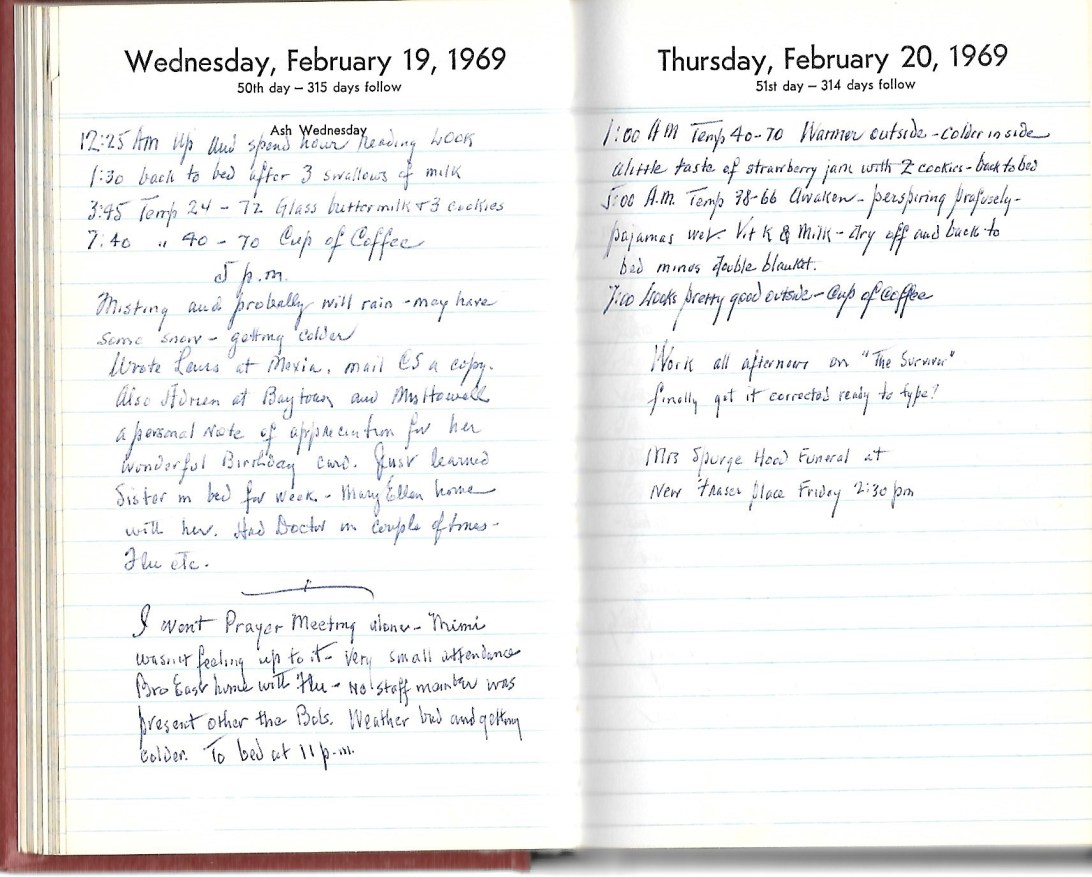 Wednesday, February 19, 1969
50th day – 315 days follow
Ash Wednesday
12:25 Am Up and spend hour reading LOOK
1:30 back to bed after 3 swallows of milk
3:45 Temp 24 - 72 Glass buttermilk + 3 cookies
7:40 " 40 - 70 Cup of Coffee
5 p.m.
Misting and probally will rain - may have
some snow - getting colder
Wrote Lewis at Mexia, mail CS a copy.
Also at Baytown and Mrs Howell
a personal note of appreciation for her
wonderful Birthday card. Just learned
Sister in bed for week. - Mary Ellen home
with her. Had Doctor in couple of times -
Flu etc.
I went Prayer Meeting alone - Mimi
wasn't feeling up to it - very small attendance
Bro East home with Flu - No staff member was
present other the Bobs. Weather bad and getting
colder. To bed at 11 p.m.
Thursday, February 20, 1969
51st day – 314 days follow
1:00 AM Temp 40-70 Warmer outside - colder inside
a little taste of strawberry jam with 2 cookies - back to bed
5:00 A.M. Temp 38-66 Awaken - perspiring profusely -
pajamas wet. Vit K & Milk - dry off and back to
bed minus double blanket.
7:00 Looks pretty good outside - Cup of Coffee
Work all afternoon on "The Survivor"
finally got it corrected ready to type?
Mrs Spurge Hood Funeral at
New Fraser Place Friday 2:30 pm